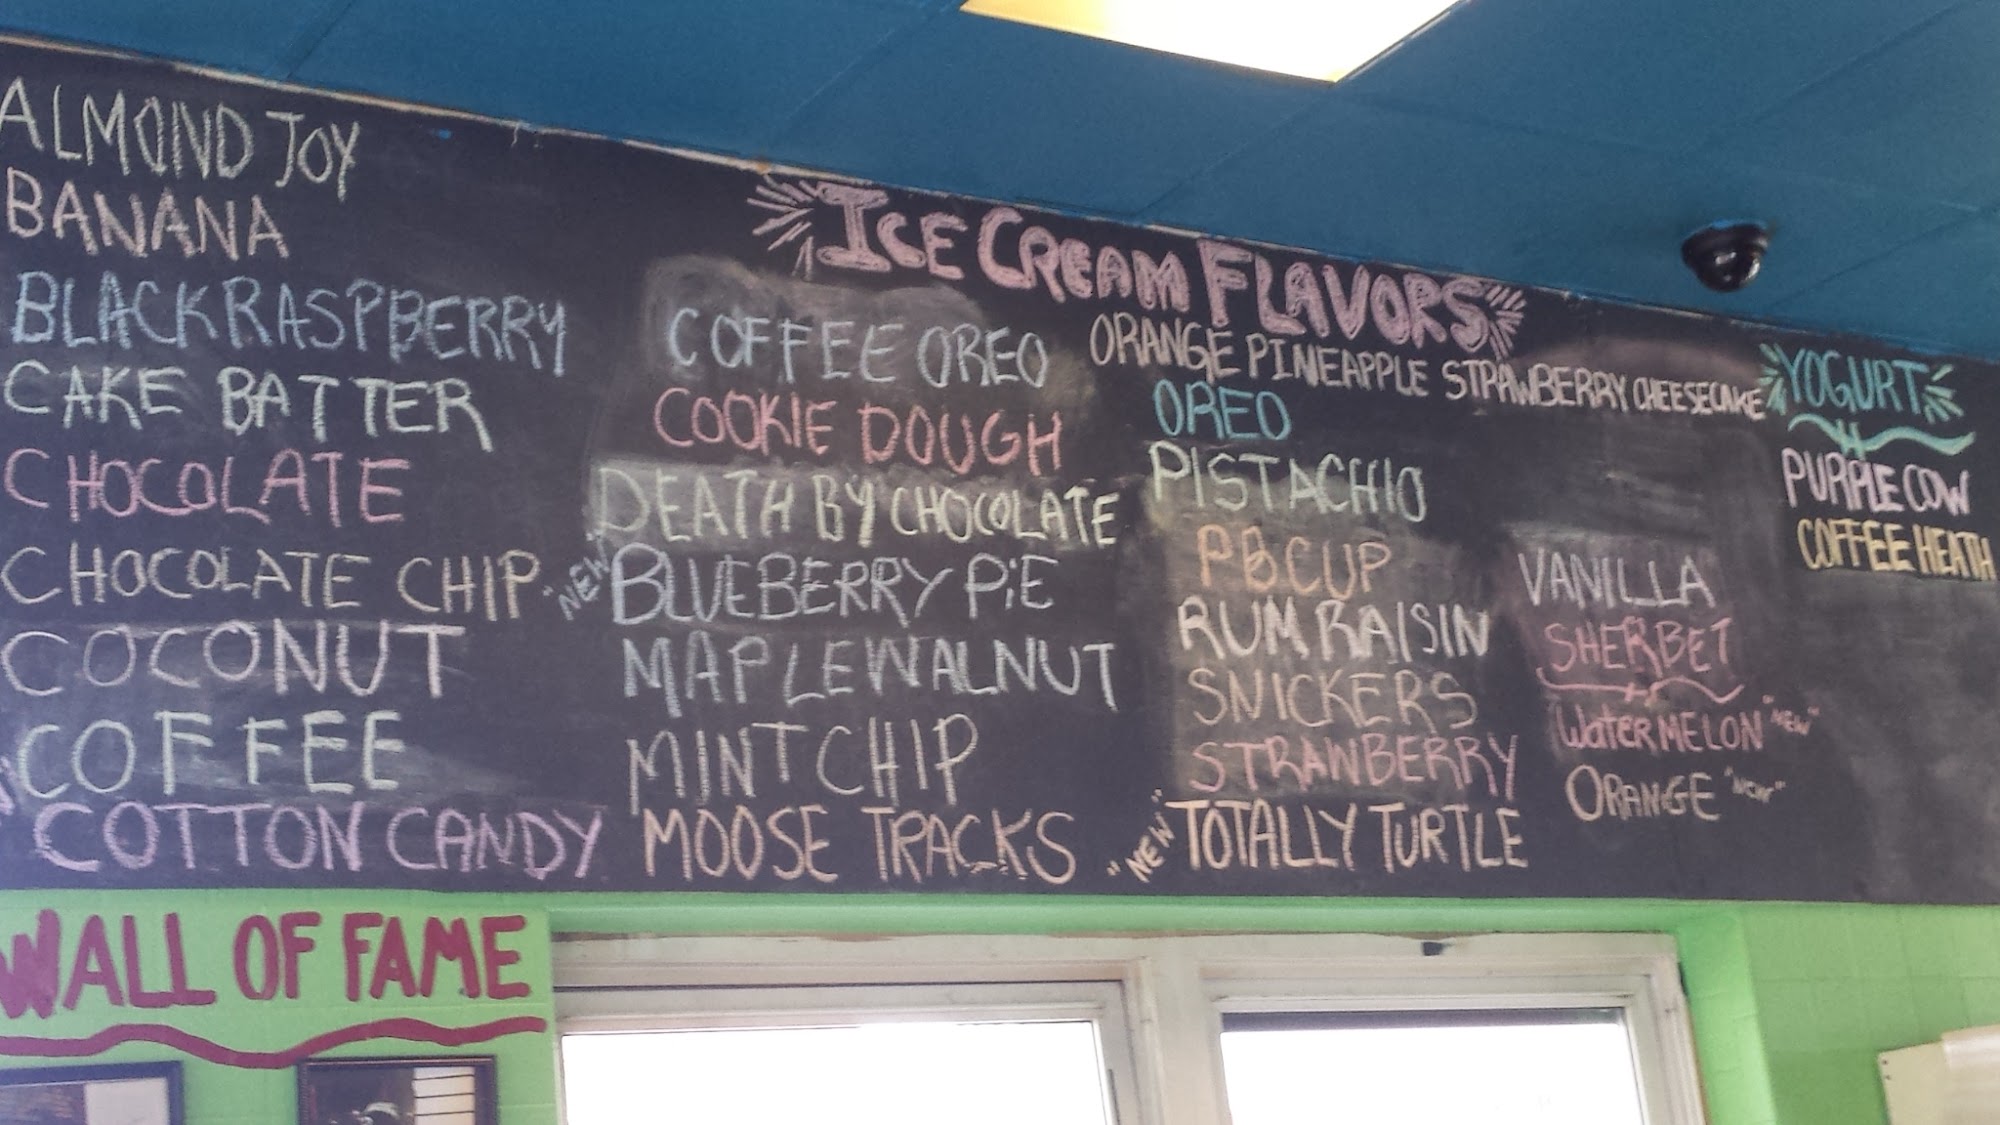 ALMOND JOY
BANANA
BLACK RASPBERRY
CAKE BATTER
CHOCOLATE
CHOCOLATE CHIP
COCONUT
COFFEE
COTTON CANDY
ICE CREAM FLAVORS
COFFEE OREO
COOKIE DOUGH
DEATH BY CHOCOLATE
"NEW" BLUEBERRY PiE
MAPLE WALNUT
MINT CHIP
MOOSE TRACKS
ORANGE PINEAPPLE
OREO
PISTACHIO
PB CUP
RUM RAISIN
SNICKERS
STRAWBERRY
"NEW" TOTALLY TURTLE
STRAWBERRY CHEESECAKE
VANILLA
SHERBET
WaterMELON "NEW"
ORANGE "NEW"
YOGURT
PURPLE COW
COFFEE HEATH
WALL OF FAME